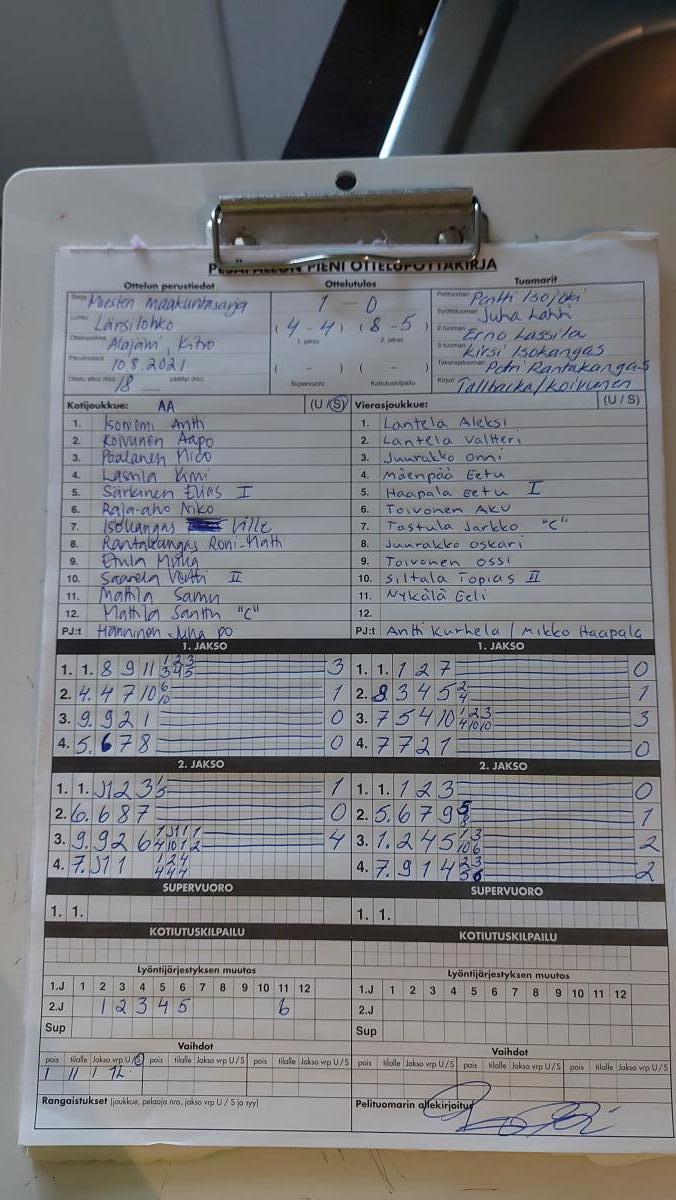 PESÄPALLON PIENI OTTELUPÖYTÄKIRJA
Ottelun perustiedot Ottelutulos Tuomarit
Sarja Miesten maakuntasarja
Lohko Länsilohko
Ottelupaikka Alajärvi, Kitro
Päivämäärä 10.8.2021
Ottelu alkoi (klo) 18 päättyi (klo)
1 - 0
(4 - 4) (8 - 5)
1. jakso 2. jakso
( - ) ( - )
Supervuoro Kotiutuskilpailu
Pelituomari Pentti Isojoki
Syöttötuomari Juha Lahti
2-tuomari Erno Lassila
3-tuomari Kirsi Isokangas
Takarajatuomari Petri Rantakangas
Kirjuri Tallbacka/Koivunen
Kotijoukkue: AA (U/S)
1. Isoniemi Antti
2. Koivunen Aapo
3. Paalanen Nico
4. Lassila Kimi
5. Särkinen Elias I
6. Raja-aho Niko
7. Isokangas Ville
8. Rantakangas Roni-Matti
9. Etula Miika
10. Saarela Vertti II
11. Mattila Samu
12. Mattila Santtu "C"
PJ:t Hänninen Juha PO
Vierasjoukkue: (U/S)
1. Lantela Aleksi
2. Lantela Valtteri
3. Juurakko Onni
4. Mäenpää Eetu
5. Haapala Eetu I
6. Toivonen Aku
7. Tastula Jarkko "C"
8. Juurakko Oskari
9. Toivonen Ossi
10. Siltala Topias II
11. Nykälä Eeli
12.
PJ:t Antti Kurhela / Mikko Haapala
1. JAKSO
1. 1. 8 9 11 1 2 3 3
3 4 5
2. 4. 4 7 10 6 1
10
3. 9. 9 2 1 0
4. 5. 6 7 8 0
1. JAKSO
1. 1. 1 2 7 0
2. 8. 3 4 5 2 1
4
3. 7 5 4 10 1 2 3 3
4 10 10
4. 7 7 2 1 0
2. JAKSO
1. 1. J1 2 3 1 1
5
2. 6. 6 8 7 0
3. 9. 9 2 6 1 J1 1 1 4
4 10 1 2
4. 7. J1 1 1 2 4
4 4 4
2. JAKSO
1. 1. 1 2 3 0
2. 5. 6 7 9 5 1
8
3. 1. 2 4 5 1 3 2
10 6
4. 7. 9 1 4 2 3 2
5 6
SUPERVUORO
1. 1.
SUPERVUORO
1. 1.
KOTIUTUSKILPAILU
KOTIUTUSKILPAILU
Lyöntijärjestyksen muutos
1.J 1 2 3 4 5 6 7 8 9 10 11 12
2.J 1 2 3 4 5 6
Sup
Lyöntijärjestyksen muutos
1.J 1 2 3 4 5 6 7 8 9 10 11 12
2.J
Sup
Vaihdot
pois tilalle Jakso vrp U/S pois tilalle Jakso vrp U/S pois tilalle Jakso vrp U/S
1 11 1 1L
Vaihdot
pois tilalle Jakso vrp U/S pois tilalle Jakso vrp U/S pois tilalle Jakso vrp U/S
Rangaistukset (joukkue, pelaaja nro, jakso vrp U / S ja syy)
Pelituomarin allekirjoitus